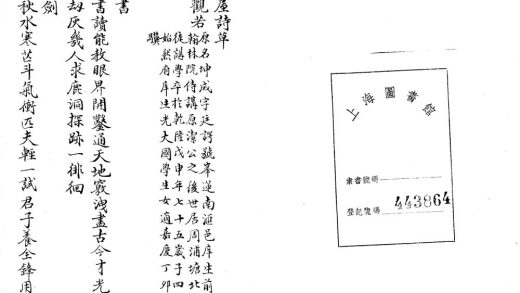 上海圖書館
索書號碼
登記號碼 443864
屋詩草
觀若
原名坤成字廷諤號峯蓮南滙邑庠生前
翰林院侍講原潔公之後世居周浦塘北
後講學卒於乾隆戊申年七十五歲子四
府庠生光大國學生女適嘉慶丁卯
驥
書
書讀能教眼界開鑿通天地竅洩盡古今才光
劫灰幾人求鹿洞探跡一徘徊
劍
秋水寒芒斗氣衝匹夫輕一試君子養全鋒用